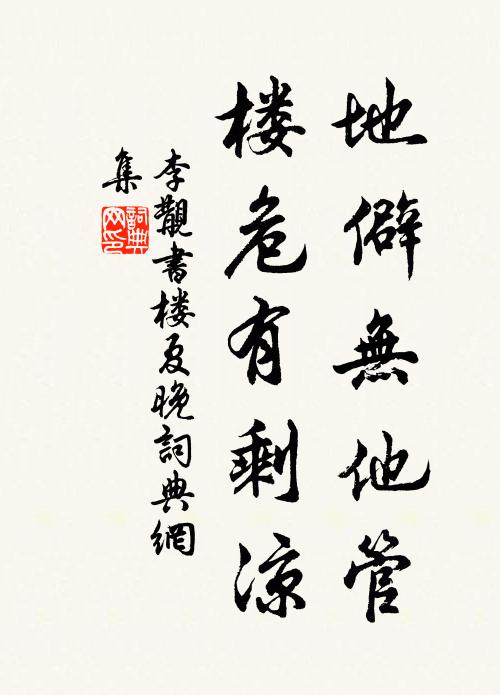 地僻無他管
楼危有剩凉
李覯書楼夏晚詞典網
集
詞典网印